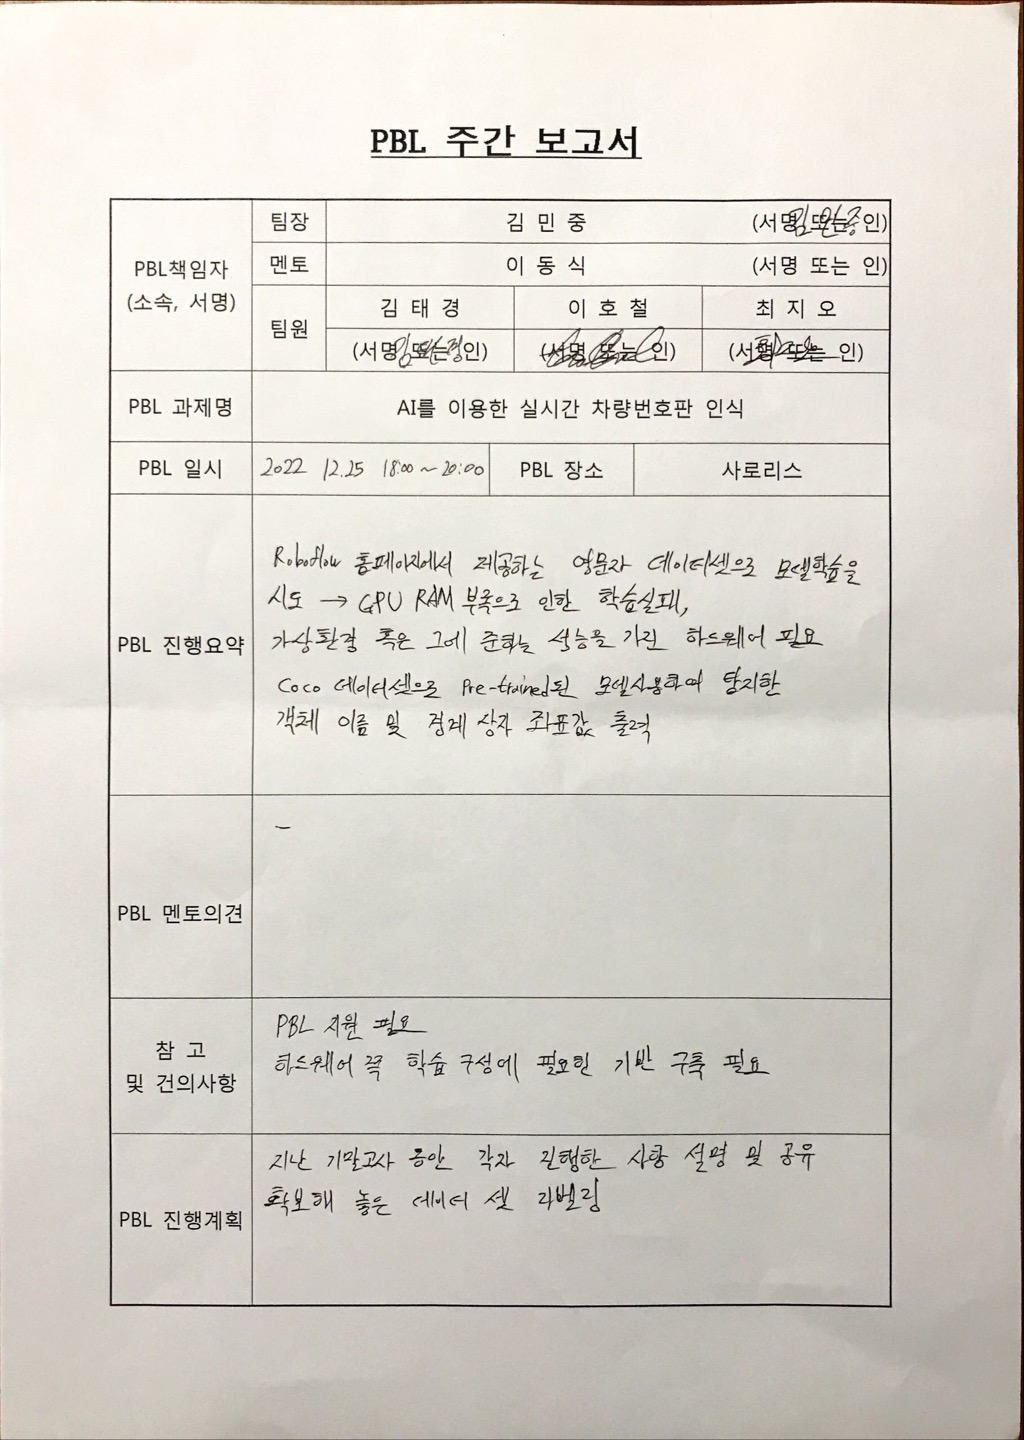 PBL 주간 보고서
PBL책임자
(소속, 서명)
팀장
김 민 중
(서명 또는 인)
김민중
멘토
이 동 식
(서명 또는 인)
팀원
김 태 경
이 호 철
최 지 오
(서명 또는 인)
(서명 또는 인)
(서명 또는 인)
PBL 과제명
AI를 이용한 실시간 차량번호판 인식
PBL 일시
2022 12.25 18:00 ~ 20:00
PBL 장소
사로리스
PBL 진행요약
Roboflow 홈페이지에서 제공하는 영문자 데이터셋으로 모델학습을
시도 → GPU RAM 부족으로 인한 학습실패,
가상환경 혹은 그에 준하는 성능을 가진 하드웨어 필요
Coco 데이터셋으로 Pre-trained된 모델사용하여 탐지한
객체 이름 및 경계 상자 좌표값 출력
PBL 멘토의견
-
참 고
및 건의사항
PBL 지원 필요
하드웨어 쪽 학습 구성에 필요한 기반 구축 필요
PBL 진행계획
지난 기말고사 동안 각자 진행한 사항 설명 및 공유
확보해 놓은 데이터 셋 라벨링